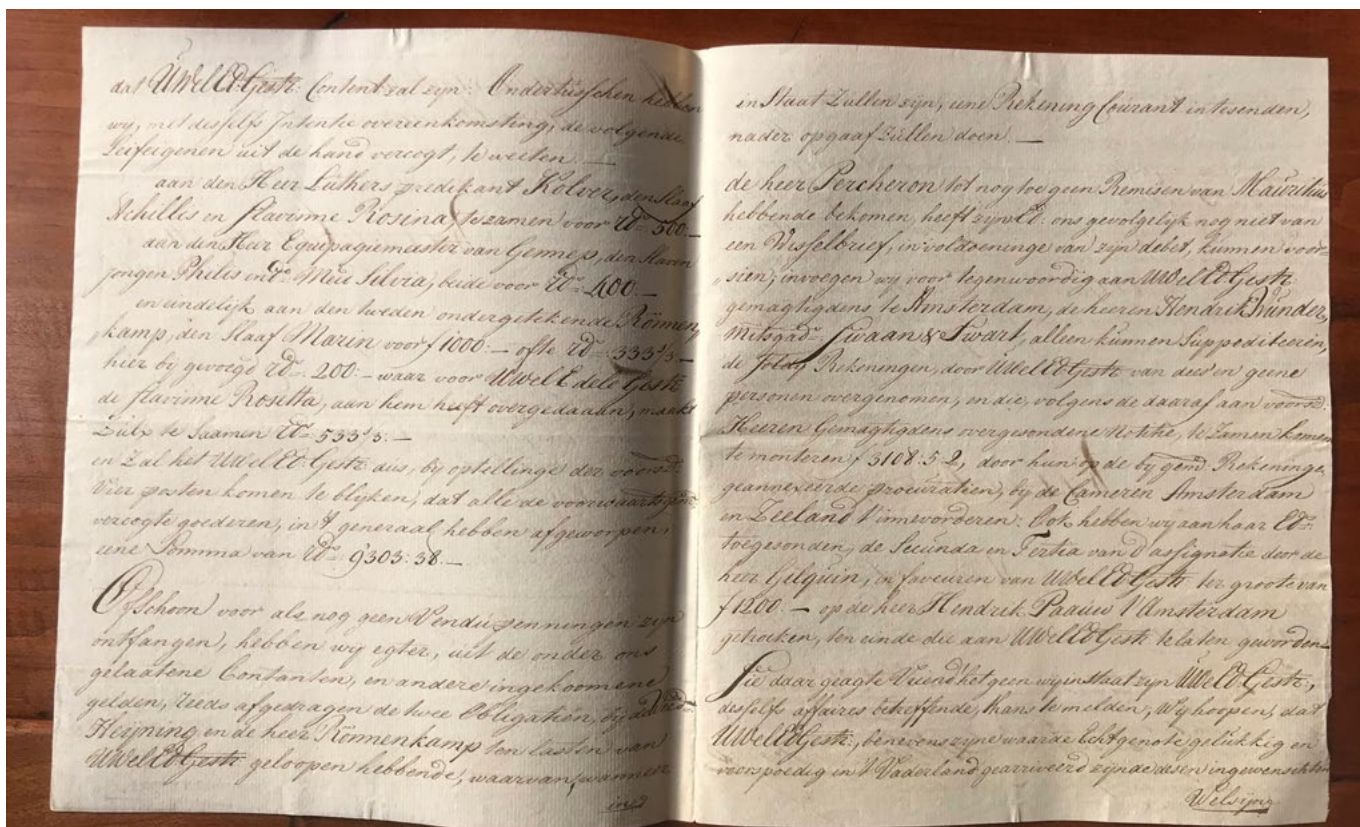 dat UWelEdGestr: Content zal zijn: Ondertusschen hebben
wy, met desselfs Intentie overeenkomstig, de volgende
Leifeigenen uit de hand vercogt, te weeten. —
aan den Heer Luthers predikant Kolver, den Slaaf
Achilles en slavinne Rosina, te zamen voor Rds 500.—
aan den Heer Equipagiemeester van Gennep, den slaven
jongen Phelis en do. Meid Silvia, beide voor Rds 400.—
en eindelijk aan den tweden ondergetekende Rönnen„
„kamp, den Slaaf Marin voor f 1000:— ofte Rds 333⅓—
hier bij gevoegd Rds 200:— waar voor UWelEdele Gestr
de slavinne Rosetta, aan hem heeft overgedaan, maakt
zulx te Saamen Rds 533⅓.—
en Zal het UWelEd:Gestr: dus, by optellinge der voorsz:
vier posten komen te blijken, dat alle de voorwaarts
vercogte goederen, in 't generaal hebben afgeworpen,
eene Somma van Rds 9303:38.—
Ofschoon voor als nog geen Vendu penningen zijn
ontfangen, hebben wij egter, uit de onder ons
gelaatene Contanten, en andere ingekoomene
gelden, reeds afgedragen de twee Obligatiën, bij
Heijning en de heer Rönnenkamp ten lasten van
UWelEdGestr: geloopen hebbende, waarvan, wanneer
in Staat Zullen zijn, eene Rekening Courant intesenden,
nader opgaaf zullen doen. —
de heer Percheron tot nog toe geen Remisen van Mauritius
hebbende bekomen, heeft zijn E: ons gevolgelijk nog niet van
een Wisselbrief, in voldoeninge van zijn debet, kunnen voor„
„sien; invoegen wij voor tegenwoordig aan UWelEdGestr:
gemagtigdens te Amsterdam, de heeren Hendrik Kunder,
mitsgads Swaan & Swart, alleen kunnen Suppediteeren,
de Soldij Rekeningen, door UWelEdGestr van dees' en geene
personen overgenomen, en die, volgens de daaraf aan voorsz:
Heeren Gemagtigdens overgesondene Notitie, te Zamen komen
te monteren f 3108:5:2, door hun op de bij gemd Rekeninge
geannexeerde procuratien, bij de Cameren Amsterdam
en Zeeland t' innevorderen: Ook hebben wij aan haar Eds
toegesonden, de Secunda en Tertia van d'assignatie door de
heer Gilquin, in faveuren van UWelEdGestr ter groote van
f 1200.— op de heer Hendrik Paauw t' Amsterdam
getrocken, ten einde die aan UWelEdGestr te laten geworden—
Sie daar geagte Vriend hetgeen wij in staat zijn UWelEdGestr:,
desselfs affaires betreffende, thans te melden, Wij hoopen, dat
UWelEdGestr:, benevens zijne waarde Echtgenote gelukkig en
voorspoedig in 't Vaderland gearriveerd zijnde desen in gewenschten
Welzijn